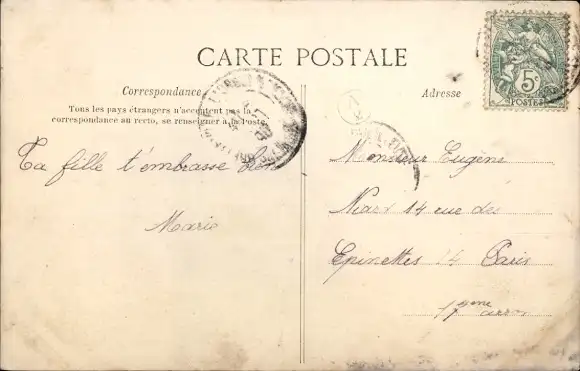 CARTE POSTALE
Correspondance
Tous les pays étrangers n'acceptent pas la
correspondance au recto, se renseigner à la Poste
Ta fille t'embrasse bien
Marie
Adresse
5c
POSTES
Monsieur Eugène
14 rue des
Epinettes 14 Paris
17eme arron